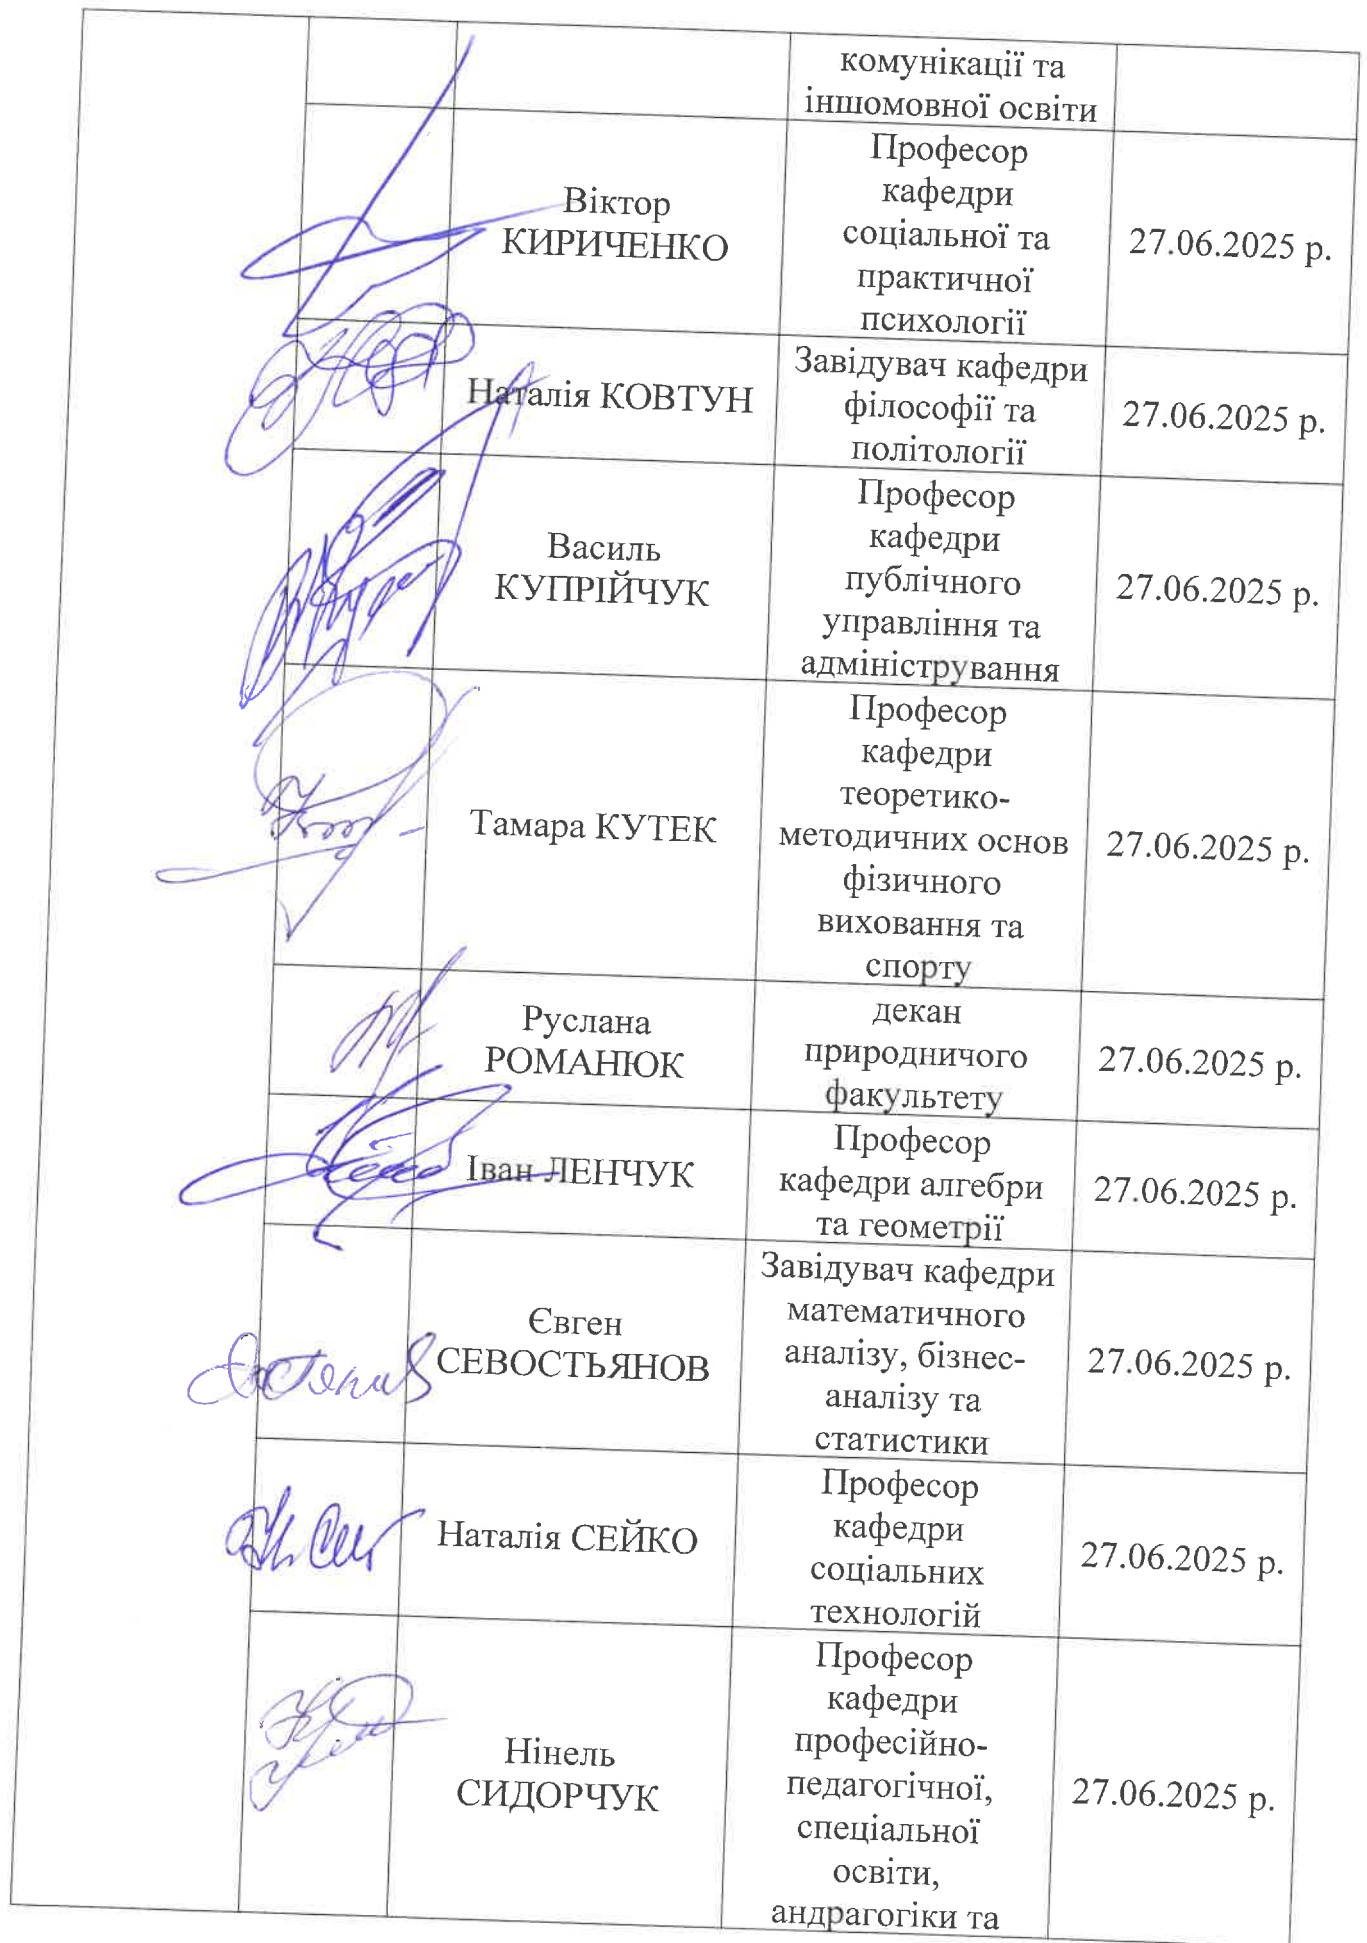 комунікації та
іншомовної освіти
Віктор
КИРИЧЕНКО
Професор
кафедри
соціальної та
практичної
психології
27.06.2025 р.
Наталія КОВТУН
Завідувач кафедри
філософії та
політології
27.06.2025 р.
Василь
КУПРІЙЧУК
Професор
кафедри
публічного
управління та
адміністрування
27.06.2025 р.
Тамара КУТЕК
Професор
кафедри
теоретико-
методичних основ
фізичного
виховання та
спорту
27.06.2025 р.
Руслана
РОМАНЮК
декан
природничого
факультету
27.06.2025 р.
Іван ЛЕНЧУК
Професор
кафедри алгебри
та геометрії
27.06.2025 р.
Євген
СЕВОСТЬЯНОВ
Завідувач кафедри
математичного
аналізу, бізнес-
аналізу та
статистики
27.06.2025 р.
Наталія СЕЙКО
Професор
кафедри
соціальних
технологій
27.06.2025 р.
Нінель
СИДОРЧУК
Професор
кафедри
професійно-
педагогічної,
спеціальної
освіти,
андрагогіки та
27.06.2025 р.